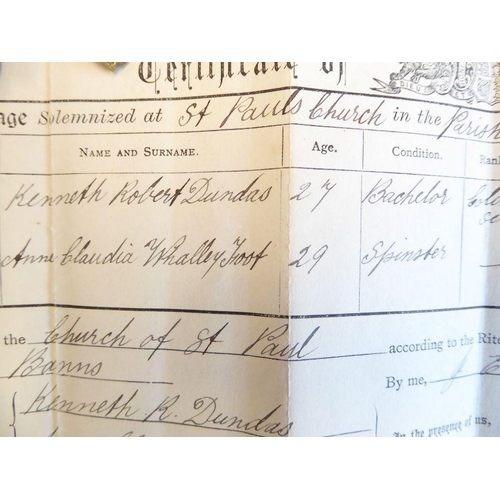 Certificate of
age Solemnized at St Pauls Church in the Parish
NAME AND SURNAME. Age. Condition. Ran
Kenneth Robert Dundas 27 Bachelor
Anne Claudia Whalley Foot 29 Spinster
the Church of St Paul according to the Rite
Banns By me,
Kenneth R. Dundas
In the presence of us,